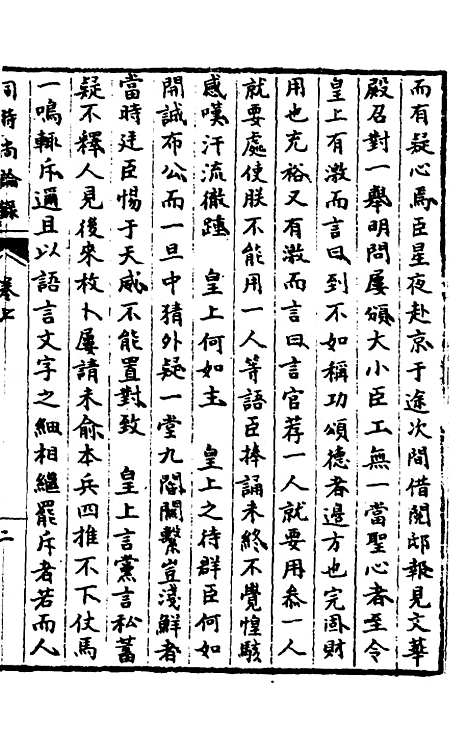 而有疑心焉臣星夜赴京于途次間借閱邸報見文華
殿召對一舉明問屢頒大小臣工無一當聖心者至令
皇上有激而言曰到不如稱功頌德者邊方也完固財
用也充裕又有激而言曰言官荐一人就要用叅一人
就要處使朕不能用一人等語臣捧誦未終不覺惶駭
感嘆汗流徹踵　皇上何如主　皇上之待群臣何如
開誠布公而一旦中猜外疑一堂九閽關繫豈淺鮮者
當時廷臣惕于天威不能置對致　皇上言黨言私蓄
疑不釋人見後來枚卜屢請未俞本兵四推不下仗馬
一鳴輒斥邇且以語言文字之細相繼罷斥者若而人
同時尚論錄　卷上　二